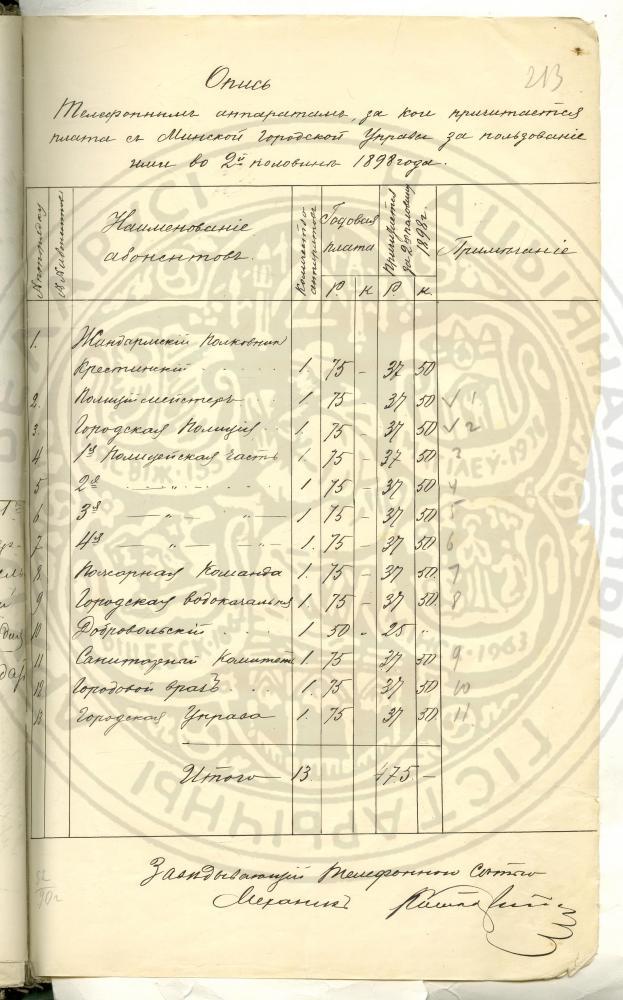 213
Опись
Телефоннымъ аппаратамъ, за кои причитается
плата съ Минской Городской Управы за пользованіе
ими во 2й половинѣ 1898 года.
№ по порядку
Наименованіе абонентовъ.
Количество аппаратовъ
Годовая плата
Р. к
Причитается за 2ю половину 1898 г.
Р. к.
Примѣчаніе
1. Жандармскій Полковник
Крестинскій . . . . . 1. 75 – 37 50
2. Полицiймейстеръ . . 1 75 – 37 50 √ 1
3. Городская Полиція . . 1. 75 – 37 50 √ 2
4 1я Полицейская часть 1. 75 – 37 50 3
5 2я — „ — 1 75 – 37 50 4
6 3я — „ — „ — 1. 75 – 37 50 5
7 4я — „ — „ — 1. 75 – 37 50 6
8 Пожарная Команда 1. 75 – 37 50. 7
9 Городская водокачальня 1. 75 – 37 50. 8
10 Добровольскій . . . . 1 50 – 25 „
11 Санитарный Комитет 1. 75 37 50 9
12 Городовой врачъ . . . 1. 75 37 50 10
13 Городская Управа 1. 75 37 50 11
Итого 13. 475 –
Завѣдывающій телефонною сѣтью
Механикъ